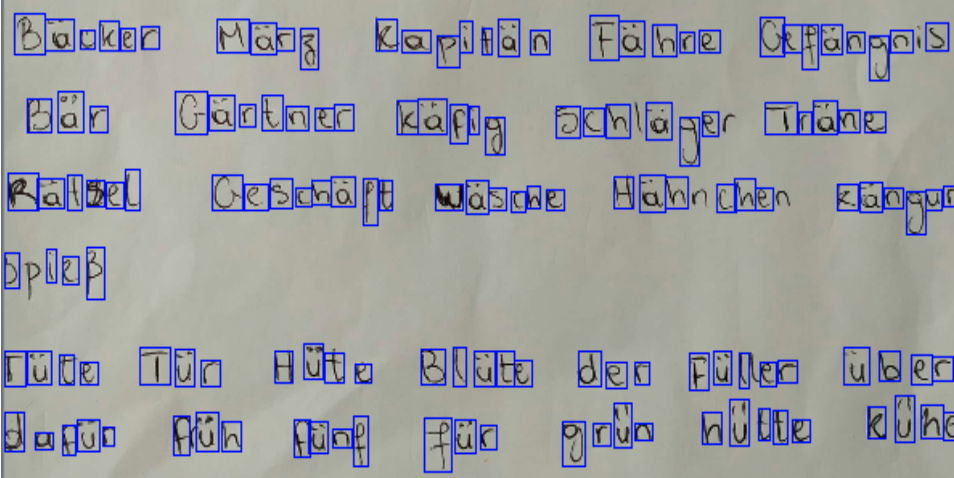 Bäcker März Kapitän Fähre Gefängnis
Bär Gärtner Käfig Schläger Träne
Rätsel Geschäft Wäsche Hähnchen Kängur
Spieß
Tüte Tür Hüte Blüte der Füller über
dafür früh fünf für grün hütte Kühe